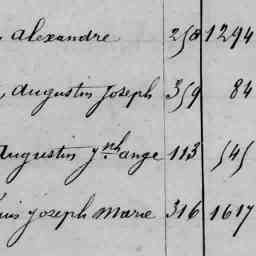 alexandre 258 1294
augustin joseph 359 84
augustin jph ange 113 545
joseph marie 316 1617